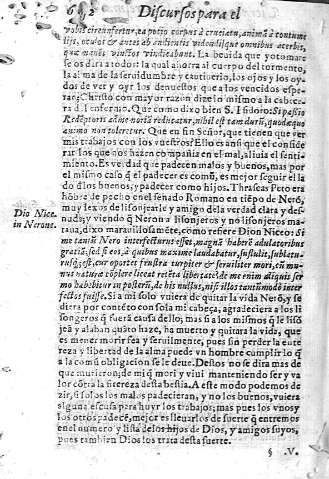 692 Discursos para el
vobis circunfertur, ea potio corpus à cruciatu, animā à contume
lijs, oculos & aures ab audientis videndisque omnibus acerbis,
quæ manēt victos vindicabunt. La beuida que yo tomare
se os dara a todos: la qual ahorra al cuerpo del tormento,
la alma de la seruidumbre y cautiuerio, los ojos y los oy-
dos de ver y oyr los denuestos que a los vencidos espe-
ra; Christo con mayor razon dize lo mismo a la cabece-
ra del enfermo. Que como dixo bien S. Isidoro: Si passio
Redēptoris ad memoriā reducatur, nihil est tam durū, quod æquo
animo non toleretur. Que en fin Señor, que tienen que ver
mis trabajos con los vuestros? Ello es ansi que el conside
rar los que nos hazen compañia en el mal, aliuia el senti-
miento. Es verdad que padecen malos y buenos, mas por
el mismo caso q̃ el padecer es comū, es mejor seguir el la
do dlos buenos, y padecer como hijos. Thraseas Peto era
hōbre de pecho en el senado Romano en tiēpo de Nerō,
muy lexos de lisongearle y amigo de la verdad clara y des-
nuda; y viendo q̃ Neron a lisonjeros y no lisonjeros ma-
Dio Nice.
in Nerone.
taua, dixo marauillosamēte, como refiere Dion Niceo: Si
me tantū Nero interfecturus esset, magnā haberē adulatoribus
gratiā: sed si eos, à quibus maxime laudabatur, sustulit, sublatu-
rusq́; est, cur oportet frustra turpiter & seruiliter mori, cū mu-
nus naturæ cōplere liceat retēta libertate? de me enim aliquis ser
mo habebitur in posterū, de his nullus, nisi illos tantūmodò inter
fectos fuisse. Si a mi solo viuiera de quitar la vida Nerō, y se
diera por conteto con sola mi cabeça, agradeciera a los li
songeros q̃ fuera causa dello; mas si a los mismos q̃ le lisō
jeā y alaban quāto haze, ha muerto y quitara la vida, que
es menester morir fea y seruilmente, pues sin perder la ente
reza y libertad de la alma puede vn hombre cumplir lo q̃
a la comū obligacion se le deue. Destos no se dira mas de
que murieron; de mi q̃ mori y viui manteniendo ser y va
lor cōtra la fiereza desta bestia. A este modo podemos de
zir, si solos los malos padecieran, y no los buenos, vuiera
alguna escusa para huyr los trabajos; mas pues los vnos y
los otros padecē, mejor es lleuarlos de suerte q̃ entremos
en el numero y lista de los hijos de Dios, y amigos suyos,
pues tambien Dios los trata desta suerte.
§ .V.